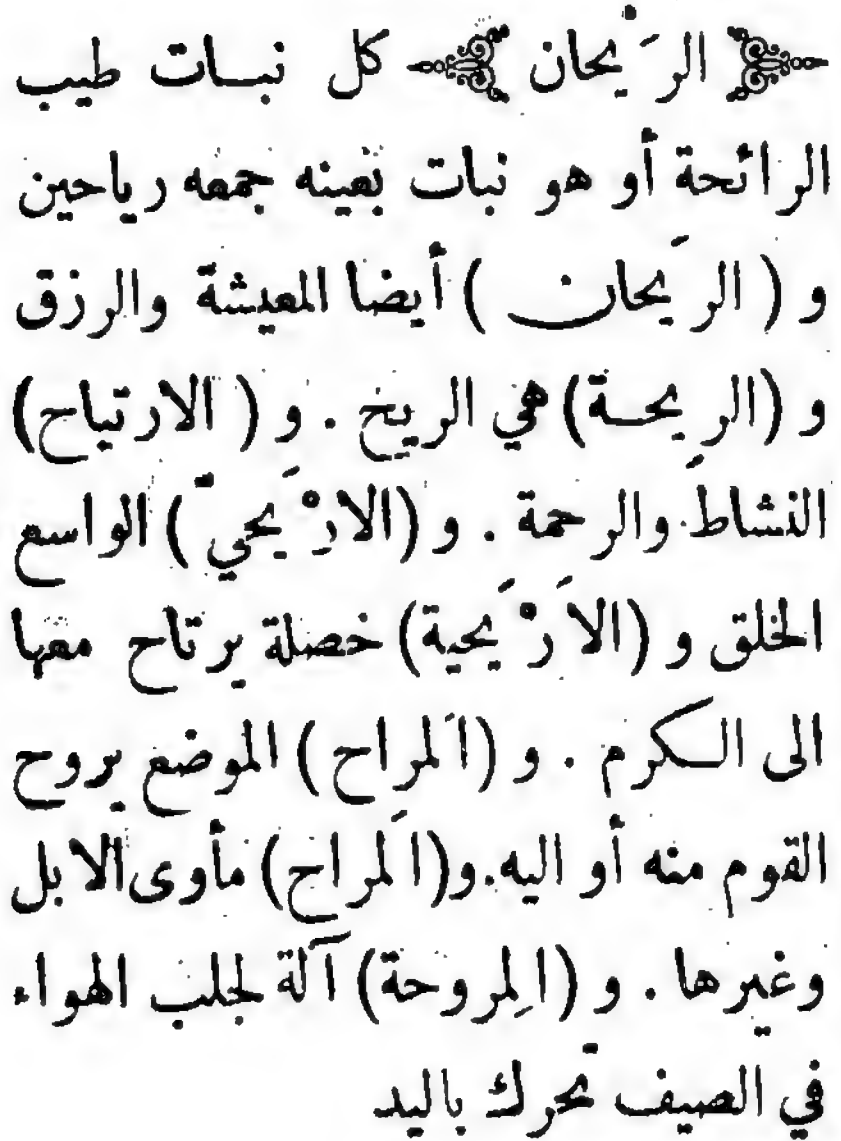 الرَيحان كل نبات طيب
الرائحة أو هو نبات بعينه جمعه رياحين
و ( الرَيحان ) أيضا المعيشة والرزق
و (الريحة) هي الريح . و ( الارتياح)
النشاط والرحمة . و (الارْيَحيّ ) الواسع
الخلق و (الاَرْيَحية) خصلة يرتاح معها
الى الكرم . و (المَراح ) الموضع يروح
القوم منه أو اليه.و(المُراح) مأوى الابل
وغيرها . و (المِروحة) آلة لجلب الهواء
في الصيف تحرك باليد